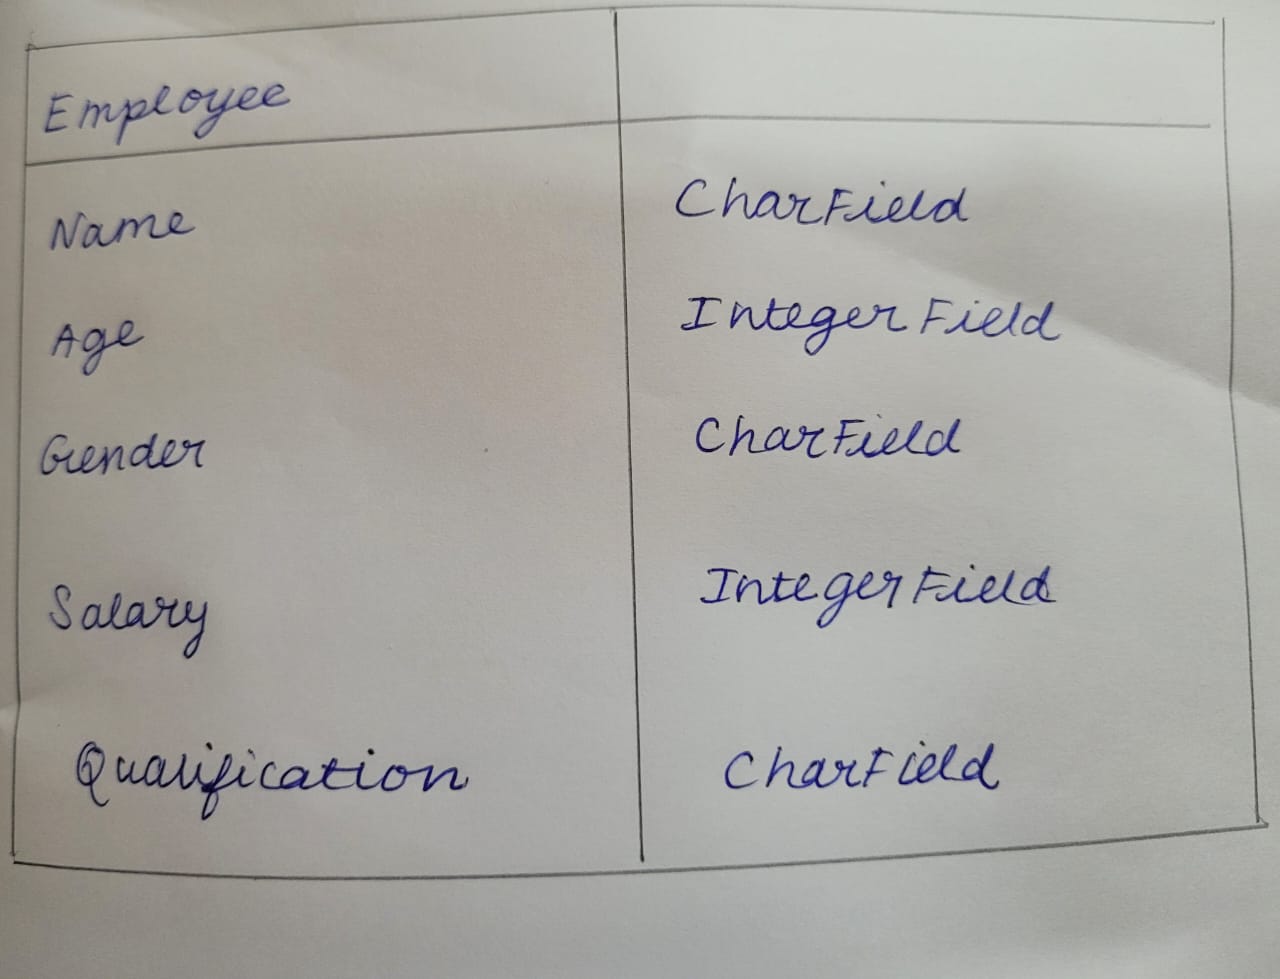 Employee
Name CharField
Age IntegerField
Gender CharField
Salary IntegerField
Qualification CharField